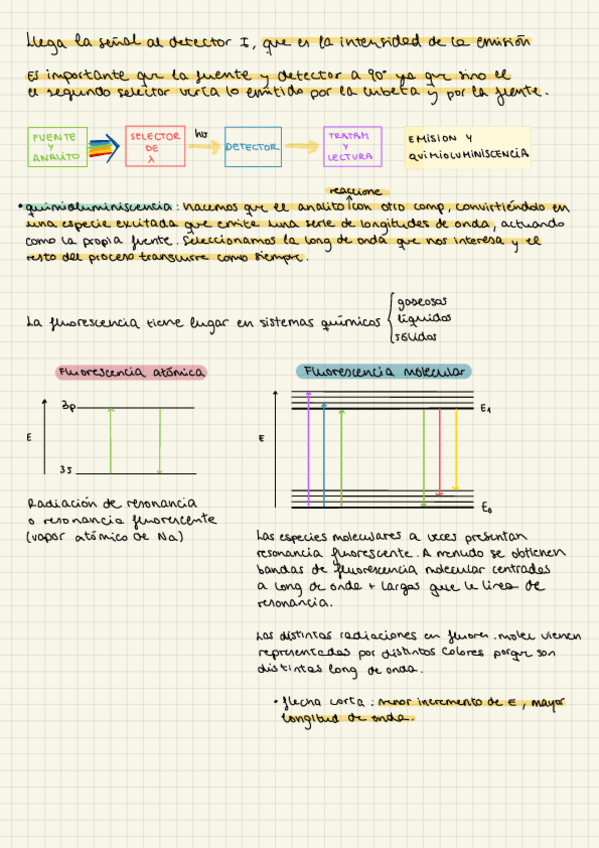 Llega la señal al detector I, que es la intensidad de la emisión
Es importante que la fuente y detector a 90° ya que sino el
el segundo selector vería lo emitido por la cubeta y por la fuente.
FUENTE
Y
ANALITO
SELECTOR
DE
λ
hν
DETECTOR
TRATAM
Y
LECTURA
EMISION Y
QUIMIOLUMINISCENCIA
reaccione
• quimioluminiscencia: hacemos que el analito con otro comp, convirtiéndolo en
una especie excitada que emite una serie de longitudes de onda, actuando
como la propia fuente. Seleccionamos la long de onda que nos interesa y el
resto del proceso transcurre como siempre.
La fluorescencia tiene lugar en sistemas químicos
gaseosas
líquidos
sólidos
Fluorescencia atómica
Fluorescencia molecular
3p
E
3s
E
E1
E0
Radiación de resonancia
o resonancia fluorescente
(vapor atómico de Na)
Las especies moleculares a veces presentan
resonancia fluorescente. A menudo se obtienen
bandas de fluorescencia molecular centradas
a long de onda + largas que la línea de
resonancia.
Las distintas radiaciones en fluores. molec vienen
representadas por distintos colores porque son
distintas long de onda.
• flecha corta: menor incremento de E, mayor
longitud de onda.